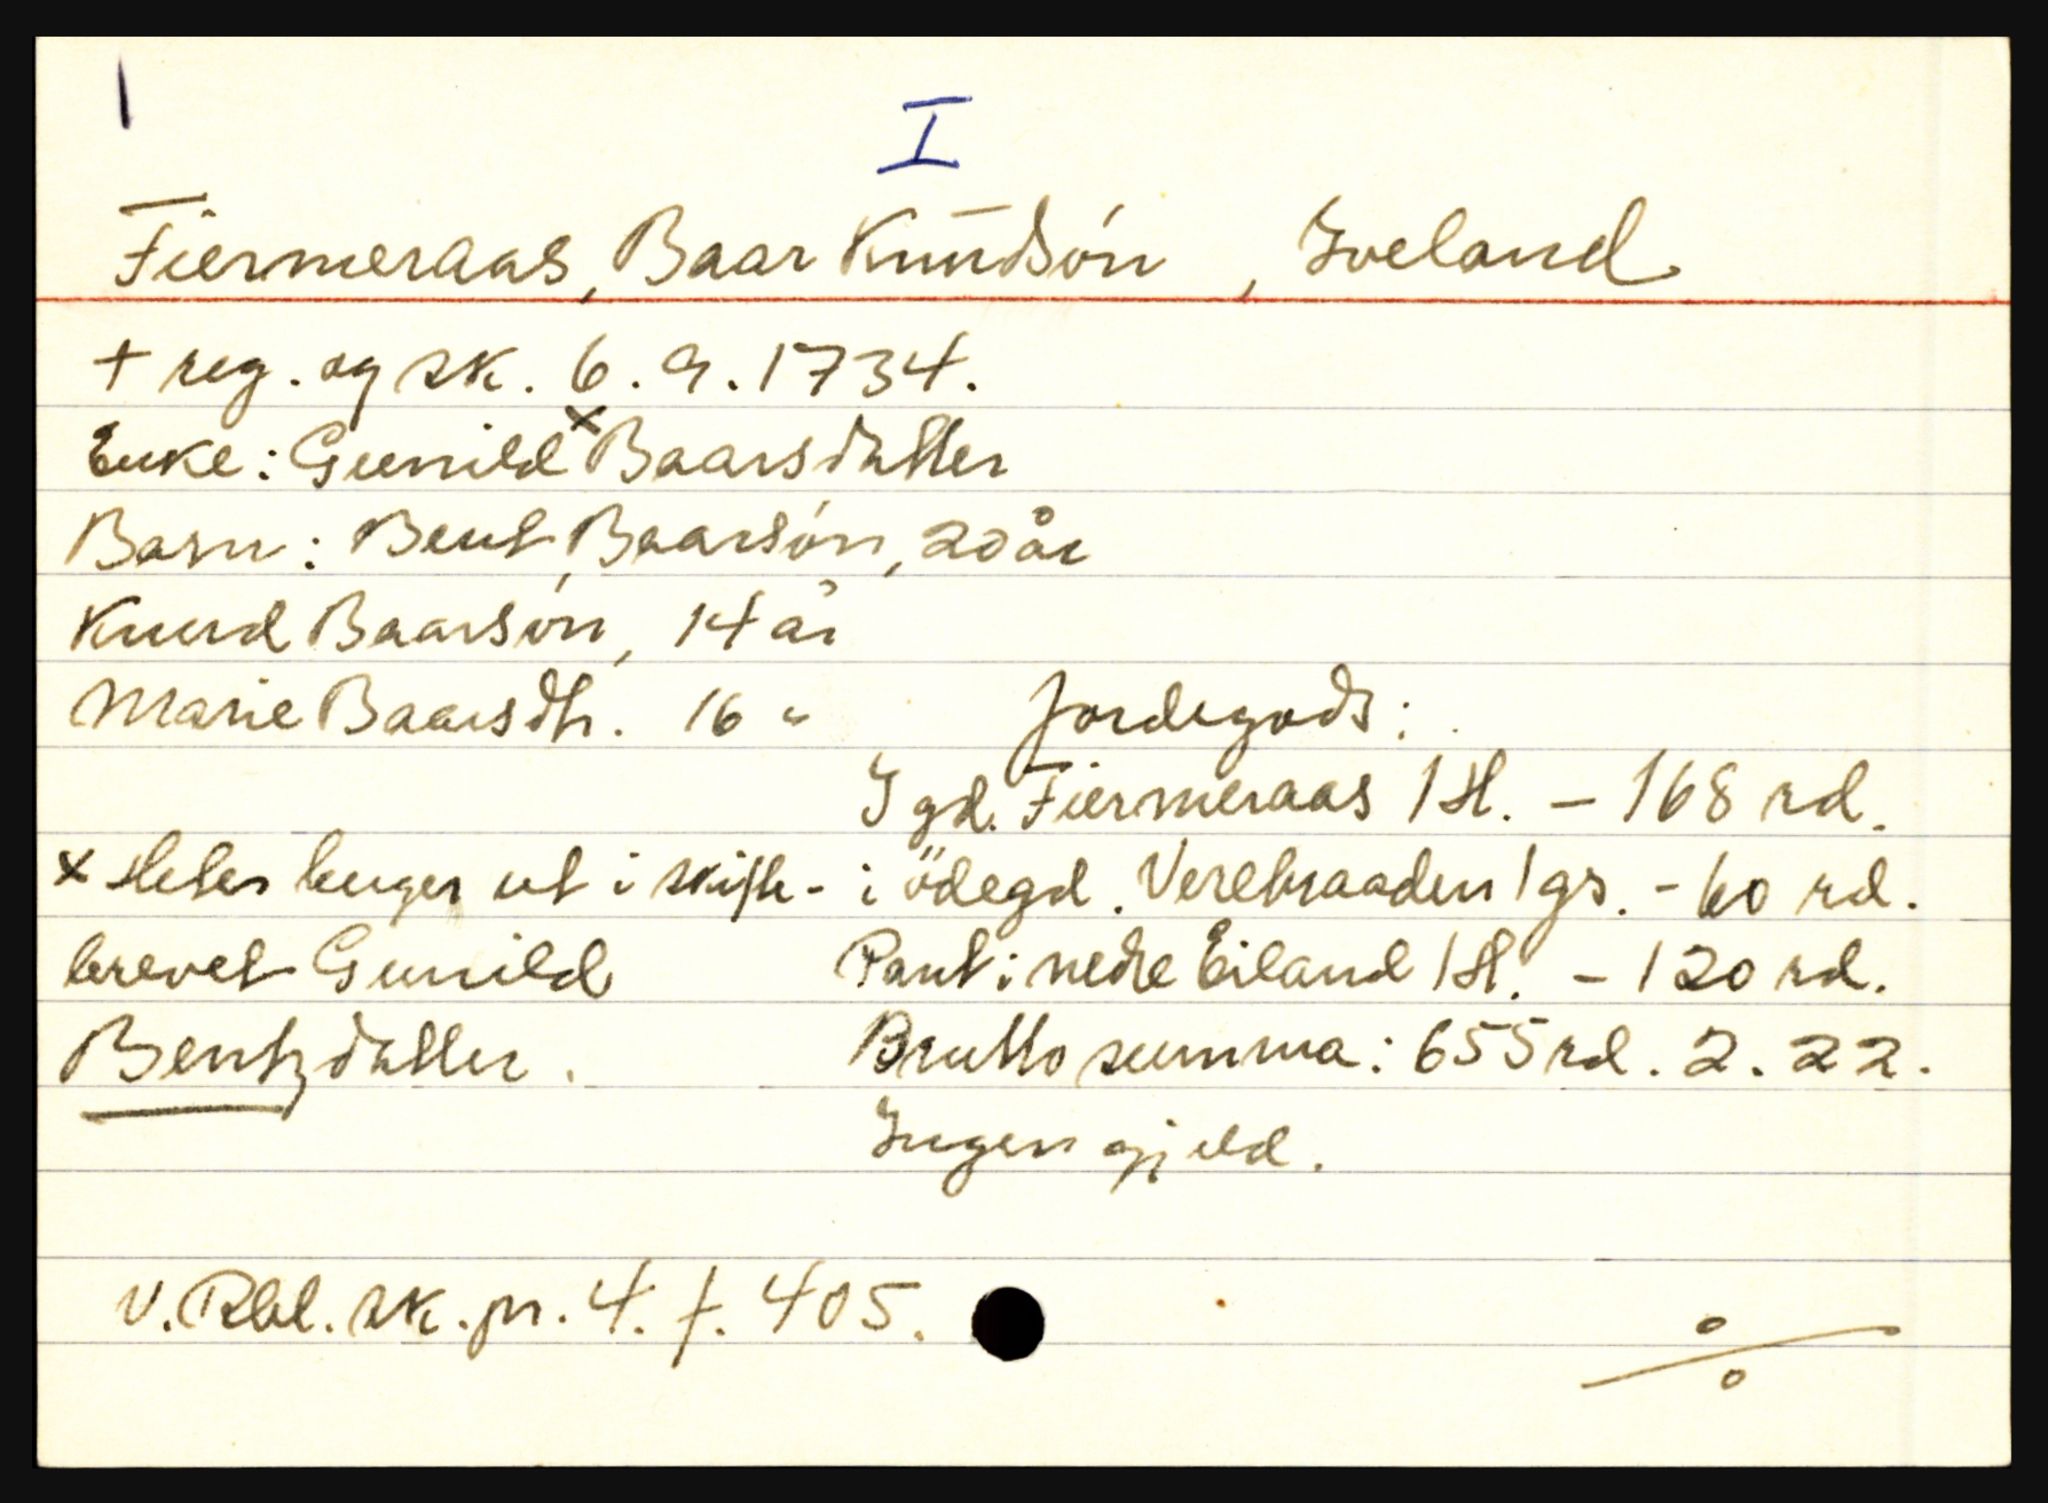 I
Fiermeraas, Baar Knudsón, Iveland
+ reg. og sk. 6.9.1734.
Enke: Gunild x Baarsdatter
Barn: Bent Baarsón, 20 år
Knud Baarsón, 14 år
Marie Baarsdtr. 16 "
Jordegods:
I gd. Fiermeraas 1 H. - 168 rd.
i ödegd. Verelsraaden 1 gs. - 60 rd.
Pant i nedre Eiland 1 H. - 120 rd.
Brutto summa: 655 rd. 2. 22.
Ingen gjeld.
x Heter lenger ut i skifte-
brevet Gunild
Bentzdatter.
v. Rbl. sk. pr. 4. f. 405.